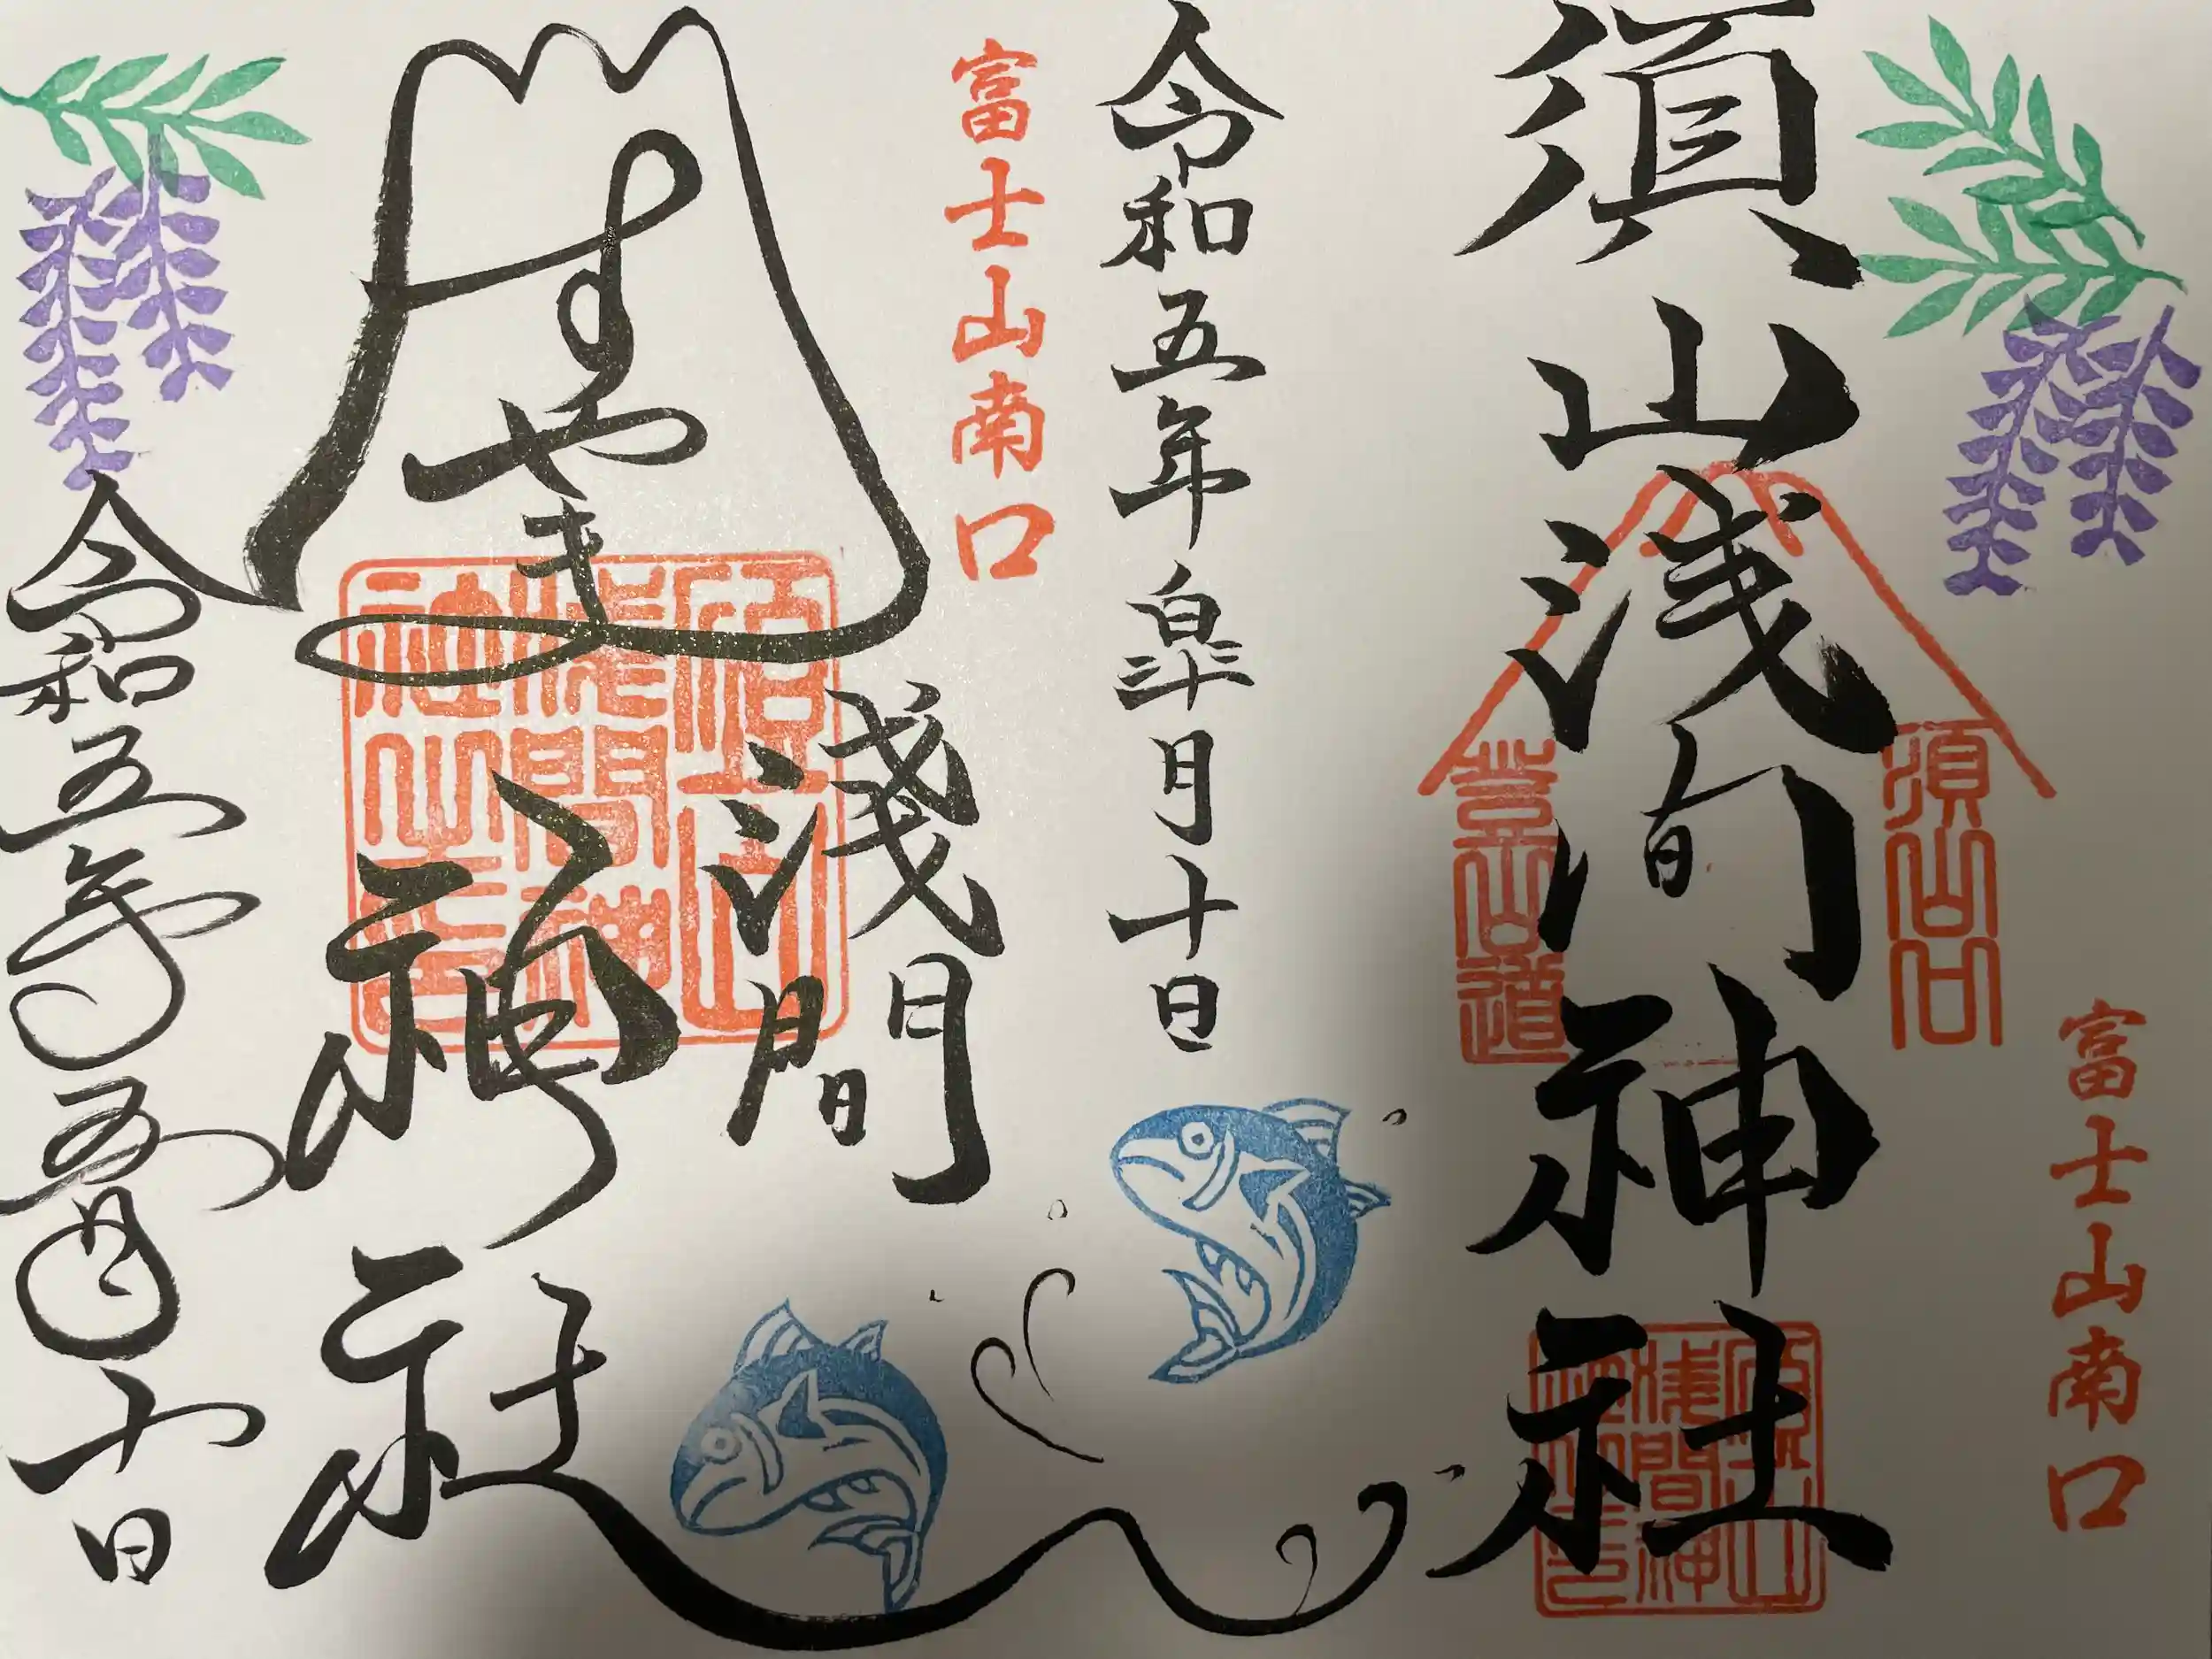 富士山南口
須山口
登山道
須山浅間神社
須山
浅間神
社之印
令和五年皐月十日
富士山南口
すやま
淺間
神社
須山
浅間神
社之印
令和五年五月十日